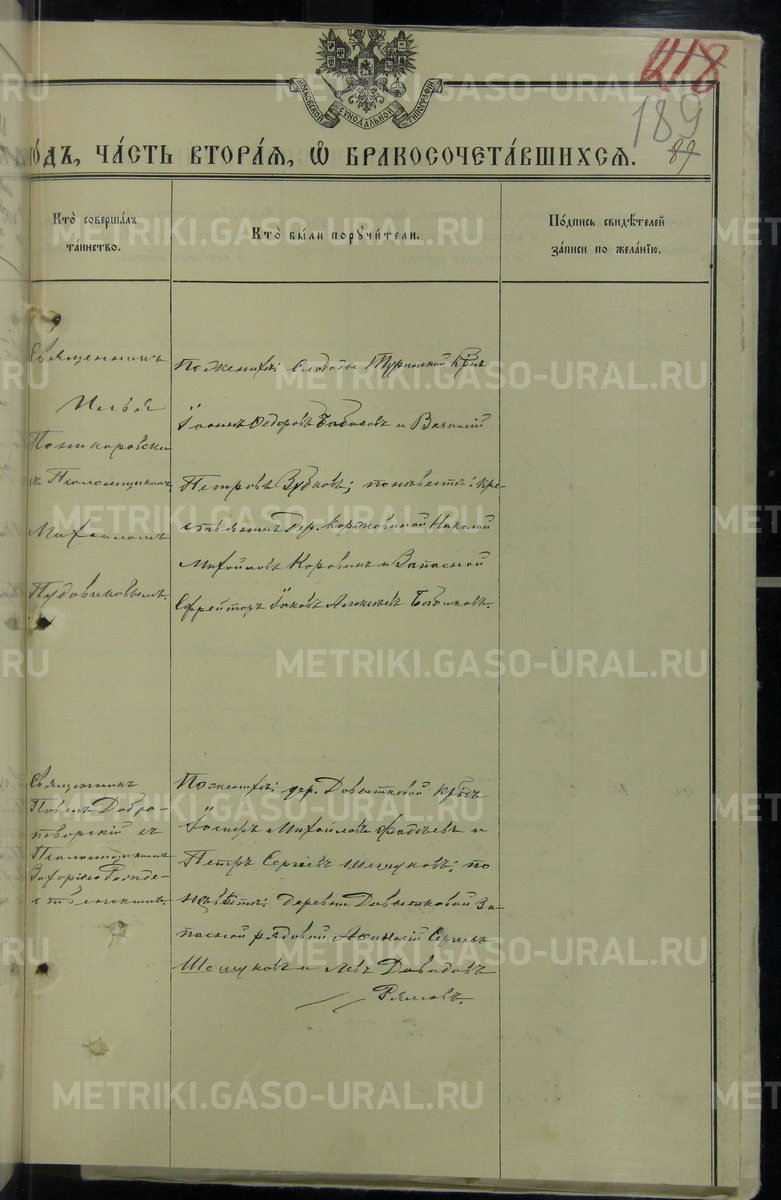 МОСКОВСКОЙ СУНОДАЛЬНОЙ ТИПОГРАФІИ
218
189
89
го́дъ, ча́сть втора́я, ѡ҆ бракосочета́вшихся.
Кто̀ соверша́лъ
та́инство.
Кто̀ бы́ли порꙋчи́тели.
По́дпись свидѣ́телей
за́писи по жела́нїю.
Священникъ
Илья
съ Псаломщикомъ
Михаиломъ
Пудовиковымъ.
По женихѣ: Слободы Туринской Крне
Іоаннъ Ѳедоровъ Бабиковъ и Василій
Петровъ Зубковъ; по невѣстѣ: кре-
стьянинъ дер. Коржавиной Николай
Михайловъ Коровинъ и Запасной
Ефрейторъ Іаковъ Алексѣевъ Бабиковъ.
Священникъ
Павелъ Добро-
творскій съ
Псаломщикомъ
Захаріею Рожде-
ственскимъ.
По женихѣ: дер. Давытковой крне
Іосифъ Михайловъ Фадѣевъ и
Петръ Сергѣевъ Шешуковъ; по
невѣстѣ: деревни Давытковой За-
пасной рядовой Аѳанасій Сергѣевъ
Шешуковъ и Левъ Давидовъ
METRIKI.GASO-URAL.RU